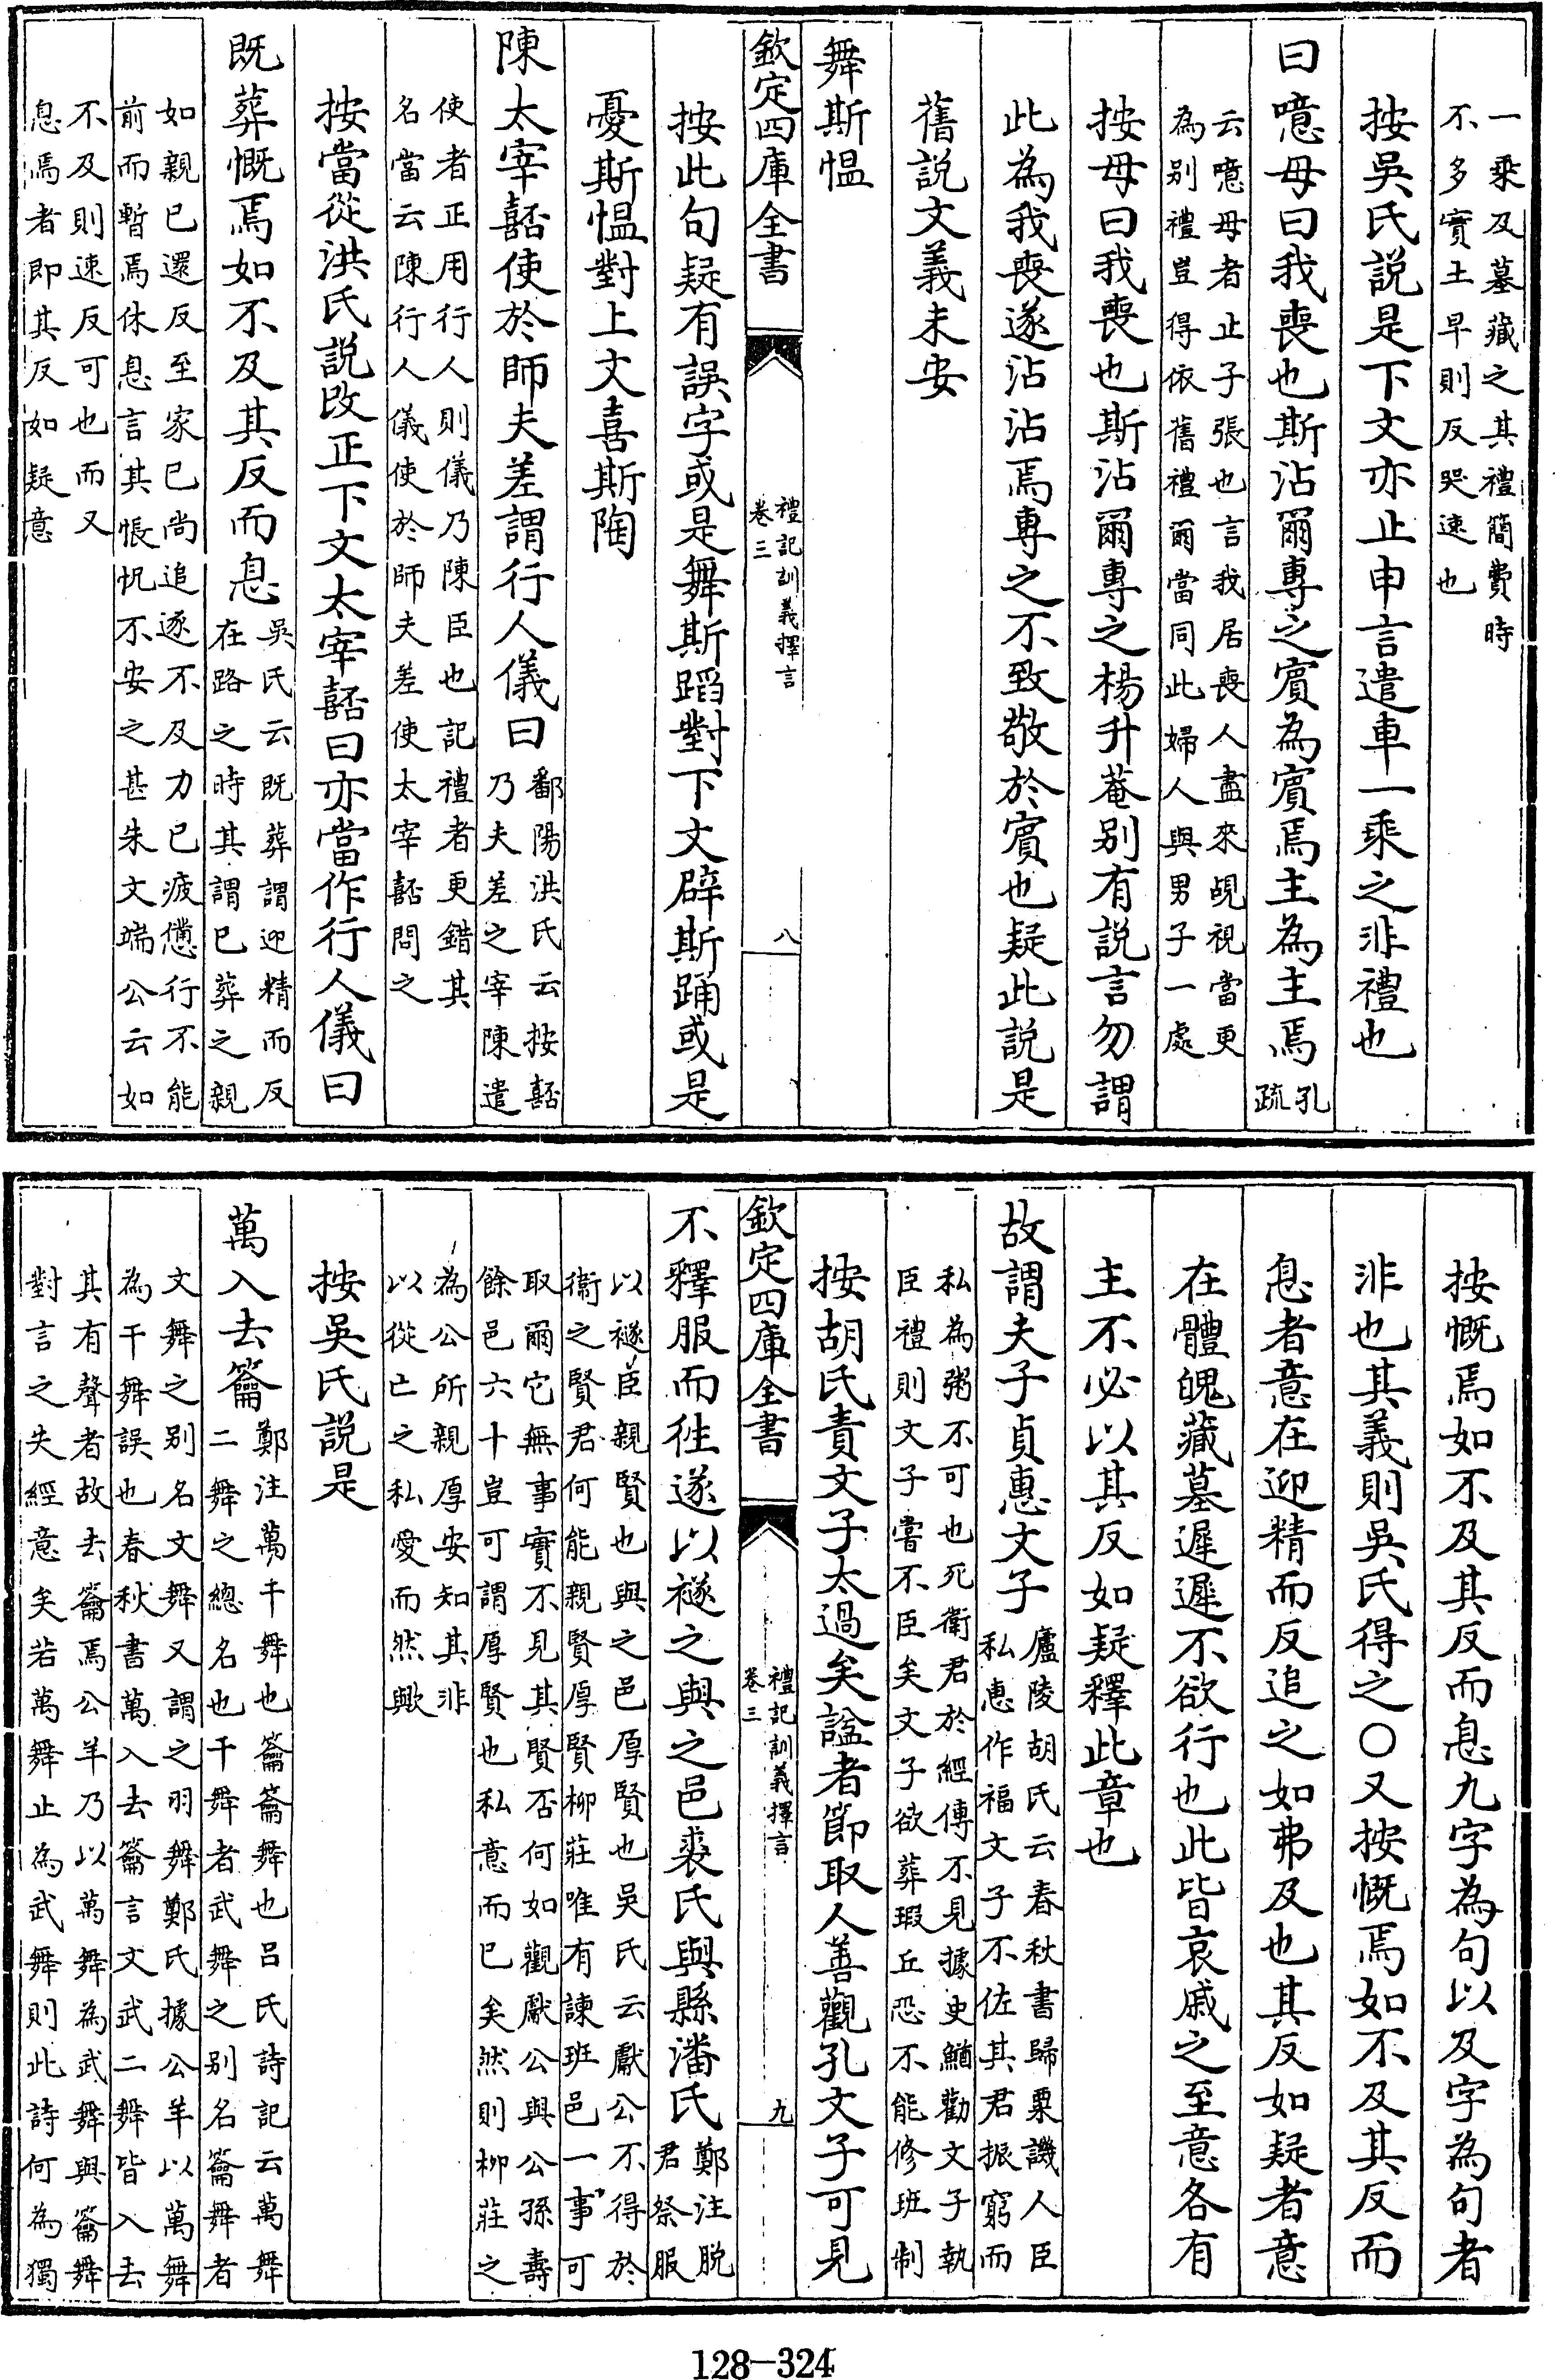 一乘及墓藏之其禮簡費時
不多實土早則反哭速也
按吳氏説是下文亦止申言遣車一乘之非禮也
曰噫毋曰我喪也斯沾爾專之賓為賓焉主為主焉
孔
疏
云噫毋者止子張也言我居喪人盡來覘視當更
為别禮豈得依舊禮爾當同此婦人與男子一處
按毋曰我喪也斯沾爾專之楊升菴别有説言勿謂
此為我喪遂沾沾焉專之不致敬於賓也疑此説是
舊説文義未安
舞斯愠
欽定四庫全書
禮記訓義擇言
卷三
八
按此句疑有誤字或是舞斯蹈對下文辟斯踊或是
憂斯愠對上文喜斯陶
陳太宰嚭使於師夫差謂行人儀曰
鄱陽洪氏云按嚭
乃夫差之宰陳遣
使者正用行人則儀乃陳臣也記禮者更錯其
名當云陳行人儀使於師夫差使太宰嚭問之
按當從洪氏説改正下文太宰嚭曰亦當作行人儀曰
既葬慨焉如不及其反而息
吳氏云既葬謂迎精而反
在路之時其謂已葬之親
如親已還反至家已尚追逐不及力已疲憊行不能
前而暫焉休息言其悵怳不安之甚朱文端公云如
不及則速反可也而又
息焉者即其反如疑意
按慨焉如不及其反而息九字為句以及字為句者
非也其義則吳氏得之〇又按慨焉如不及其反而
息者意在迎精而反追之如弗及也其反如疑者意
在體魄藏墓遲遲不欲行也此皆哀戚之至意各有
主不必以其反如疑釋此章也
故謂夫子貞惠文子
廬陵胡氏云春秋書歸粟譏人臣
私惠作福文子不佐其君振窮而
私為粥不可也死衛君於經傳不見據史鰌勸文子執
臣禮則文子嘗不臣矣文子欲葬瑕丘恐不能修班制
按胡氏責文子太過矣諡者節取人善觀孔文子可見
欽定四庫全書
禮記訓義擇言
卷三
九
不釋服而往遂以襚之與之邑裘氏與縣潘氏
鄭注脱
君祭服
以襚臣親賢也與之邑厚賢也吳氏云獻公不得於
衞之賢君何能親賢厚賢柳莊唯有諫班邑一事可
取爾它無事實不見其賢否何如觀獻公與公孫壽
餘邑六十豈可謂厚賢也私意而已矣然則柳莊之
為公所親厚安知其非
以從亡之私愛而然歟
按吳氏説是
萬入去籥
鄭注萬干舞也籥籥舞也吕氏詩記云萬舞
二舞之總名也干舞者武舞之别名籥舞者
文舞之别名文舞又謂之羽舞鄭氏據公羊以萬舞
為干舞誤也春秋書萬入去籥言文武二舞皆入去
其有聲者故去籥焉公羊乃以萬舞為武舞與籥舞
對言之失經意矣若萬舞止為武舞則此詩何為獨
128—324